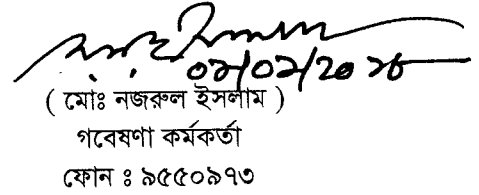 ০১/০১/২০১৮
( মোঃ নজরুল ইসলাম )
গবেষণা কর্মকর্তা
ফোন ঃ ৯৫৫০৯৭৩